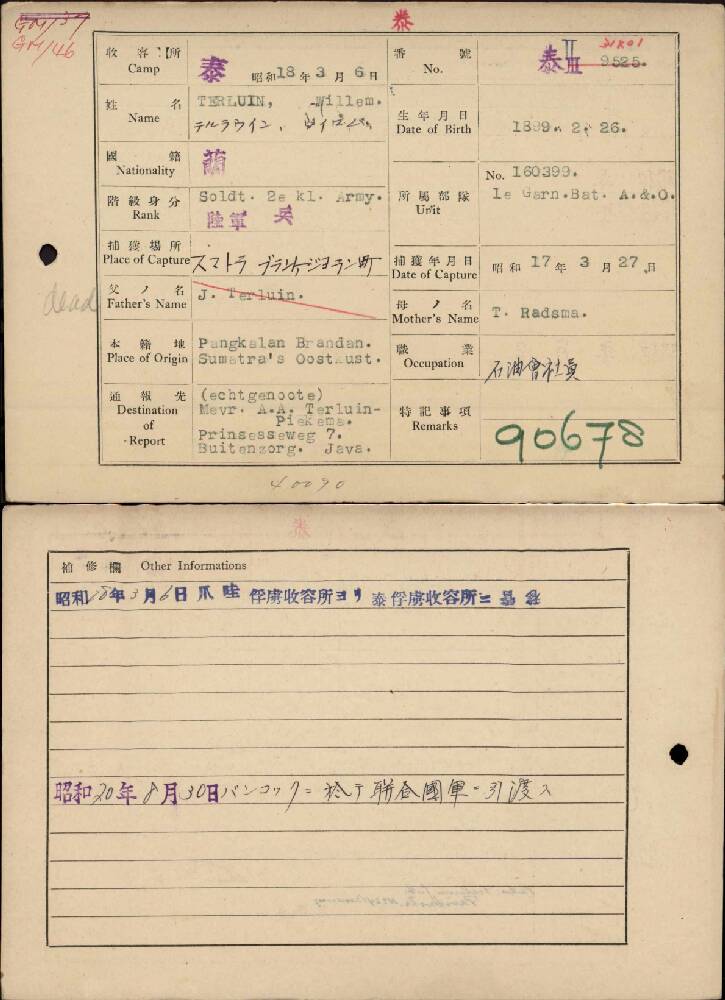 GM/37
GM/46
泰
收容所 Camp 泰 昭和18年3月6日
番號 No. 泰 II III 9525. 31K01
姓名 Name TERLUIN, Willem.
テルラウイン、ウイレム
生年月日 Date of Birth 1899. 2. 26.
國籍 Nationality 蘭
階級身分 Rank Soldt. 2e kl. Army.
陸軍 兵
所屬部隊 Unit No. 160399.
1e Garn.Bat. A.&.O.
捕獲場所 Place of Capture スマトラ ブランケジヨラン町
捕獲年月日 Date of Capture 昭和17年3月27日
dead
父ノ名 Father's Name J. Terluin.
母ノ名 Mother's Name T. Radsma.
本籍地 Place of Origin Pangkalan Brandan.
Sumatra's Oostkust.
職業 Occupation 石油會社員
通報先 Destination of Report (echtgenoote)
Mevr. A.A. Terluin-
Piekema.
Prinsesseweg 7.
Buitenzorg. Java.
特記事項 Remarks 90678
40090
泰
補修欄 Other Informations
昭和18年3月6日 爪哇 俘虜收容所ヨリ 泰俘虜收容所ニ
昭和20年8月30日バンコツクニ於テ聯合國軍ニ引渡ス